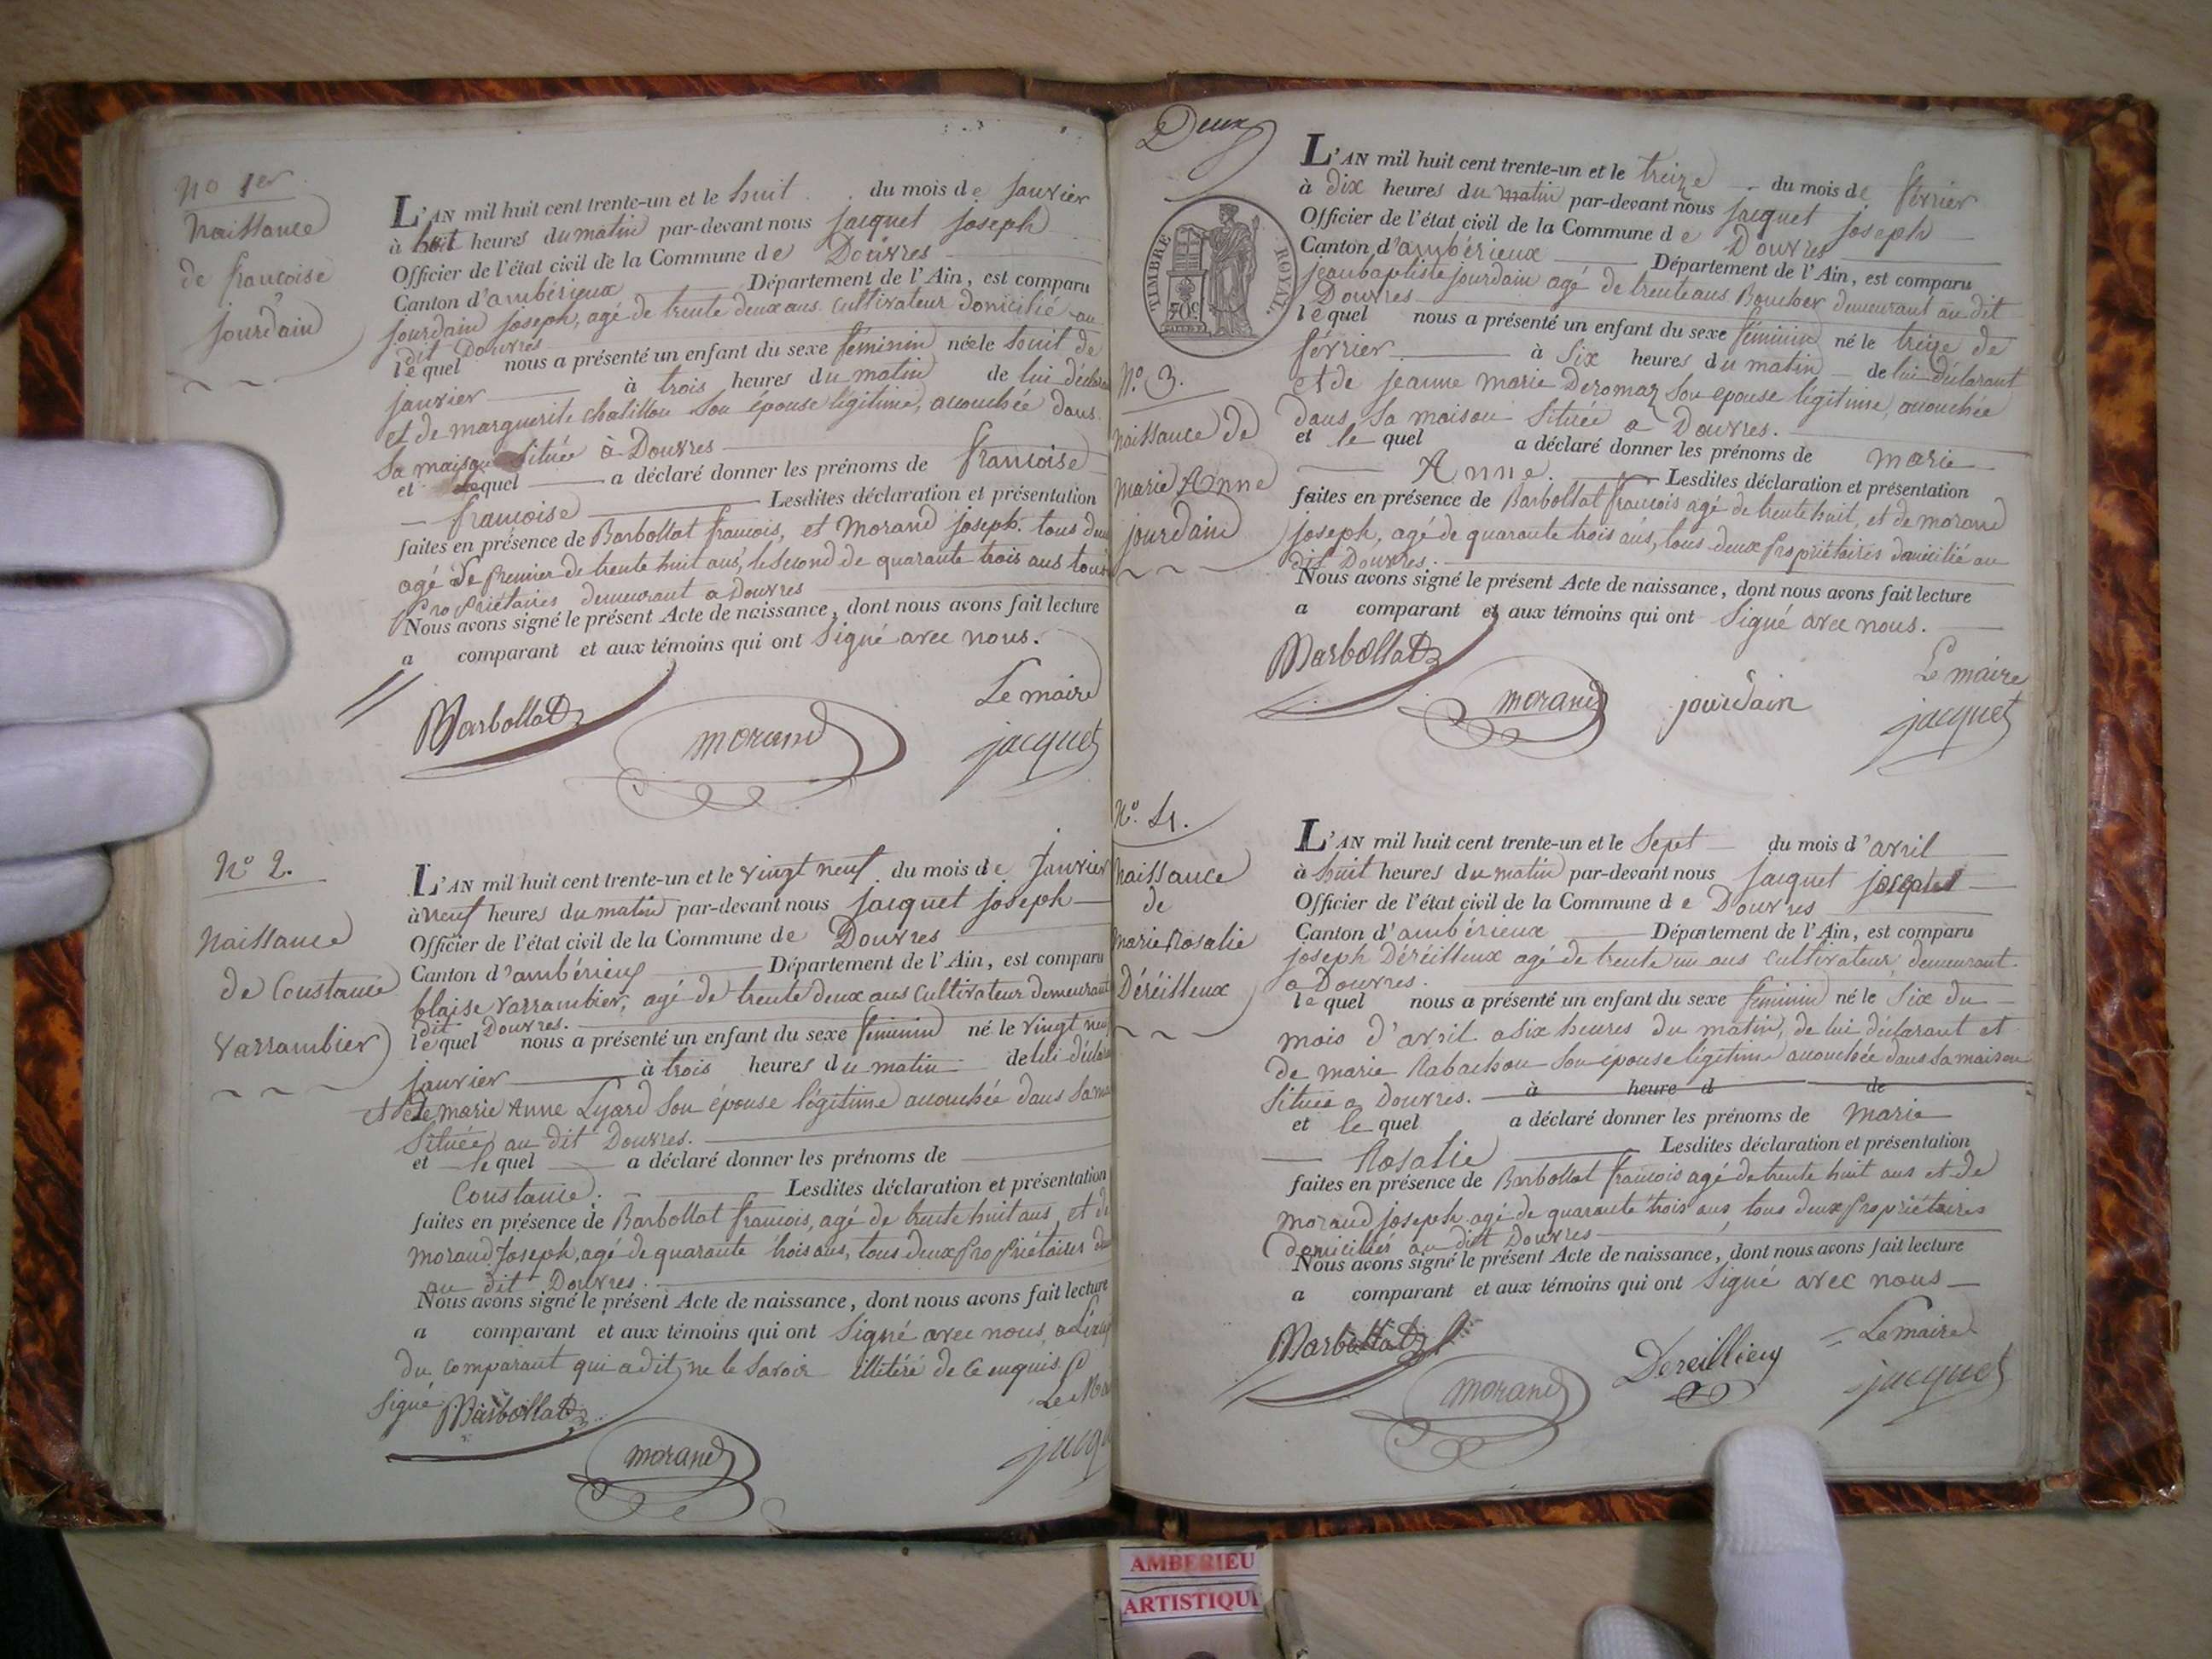 No 1er
Naissance
de francoise
jourdain
L'AN mil huit cent trente-un et le huit du mois de Janvier
à huit heures du matin par-devant nous jacquet joseph
Officier de l'état civil de la Commune de Douvres
Canton d'ambérieux Département de l'Ain, est comparu
jourdain joseph, agé de trente deux ans cultivateur domicilié au
dit Douvres
lequel nous a présenté un enfant du sexe féminin née le huit de
janvier à trois heures du matin de lui déclarant
et de marguerite chatillon son épouse légitime, accouchée dans
sa maison située à Douvres
et lequel a déclaré donner les prénoms de francoise
francoise Lesdites déclaration et présentation
faites en présence de Barbollat francois, et Morand joseph. tous deux
agé le premier de trente huit ans, le second de quarante trois ans tous
Propriétaires demeurant a Douvres
Nous avons signé le présent Acte de naissance, dont nous avons fait lecture
a comparant et aux témoins qui ont Signé avec nous.
Le maire
Barbollat morand jacquet
No 2.
Naissance
de Constance
Varrambier
L'AN mil huit cent trente-un et le vingt neuf du mois de Janvier
à neuf heures du matin par-devant nous jacquet joseph
Officier de l'état civil de la Commune de Douvres
Canton d'ambérieux Département de l'Ain, est comparu
blaise varrambier, agé de trente deux ans cultivateur demeurant
dit Douvres.
lequel nous a présenté un enfant du sexe féminin né le vingt neuf
janvier à trois heures du matin de lui déclarant
et de marie Anne Lyard son épouse légitime accouchée dans sa
située au dit Douvres.
et lequel a déclaré donner les prénoms de
Constance. Lesdites déclaration et présentation
faites en présence de Barbollat francois, agé de trente huit ans, et de
morand Joseph, agé de quarante trois ans, tous deux Propriétaires
au dit Douvres.
Nous avons signé le présent Acte de naissance, dont nous avons fait lecture
a comparant et aux témoins qui ont Signé avec nous
du comparant qui a dit ne le savoir illitéré de ce enquis
Signé Barbollat
morand
Deux
TIMBRE ROYAL.
70c
No. 3.
Naissance de
marie Anne
jourdain
L'AN mil huit cent trente-un et le treize du mois de février
à dix heures du matin par-devant nous jacquet joseph
Officier de l'état civil de la Commune de Douvres
Canton d'ambérieux Département de l'Ain, est comparu
jean baptiste jourdain agé de trente ans Boucher demeurant au dit
Douvres
lequel nous a présenté un enfant du sexe féminin né le treize de
février à six heures du matin de lui déclarant
et de jeanne marie Deromaz son epouse légitime, accouchée
dans sa maison située a Douvres.
et le quel a déclaré donner les prénoms de marie
Anne. Lesdites déclaration et présentation
faites en présence de Barbollat francois agé de trente huit, et de morand
joseph, agé de quarante trois ans, tous deux Propriétaires domicilié au
dit Douvres.
Nous avons signé le présent Acte de naissance, dont nous avons fait lecture
a comparant et aux témoins qui ont Signé avec nous.
Le maire
Barbollat morand jourdain jacquet
No. 4.
Naissance
de
marie Rosalie
Déréilleux
L'AN mil huit cent trente-un et le Sept du mois d'avril
à huit heures du matin par-devant nous jacquet joseph
Officier de l'état civil de la Commune de Douvres
Canton d'ambérieux Département de l'Ain, est comparu
joseph Déréilleux agé de trente un ans cultivateur demeurant
a Douvres.
lequel nous a présenté un enfant du sexe féminin né le Six du
mois d'avril a six heures du matin, de lui déclarant et
de marie Rabachou son épouse légitime accouchée dans sa maison
située a Douvres. à heure d de
et le quel a déclaré donner les prénoms de marie
Rosalie Lesdites déclaration et présentation
faites en présence de Barbollat francois agé de trente huit ans et de
morand joseph agé de quarante trois ans, tous deux Propriétaires
domiciliés au dit Douvres
Nous avons signé le présent Acte de naissance, dont nous avons fait lecture
a comparant et aux témoins qui ont Signé avec nous
Le maire
Barbollat morand Dereillieux jacquet
AMBERIEU
ARTISTIQU